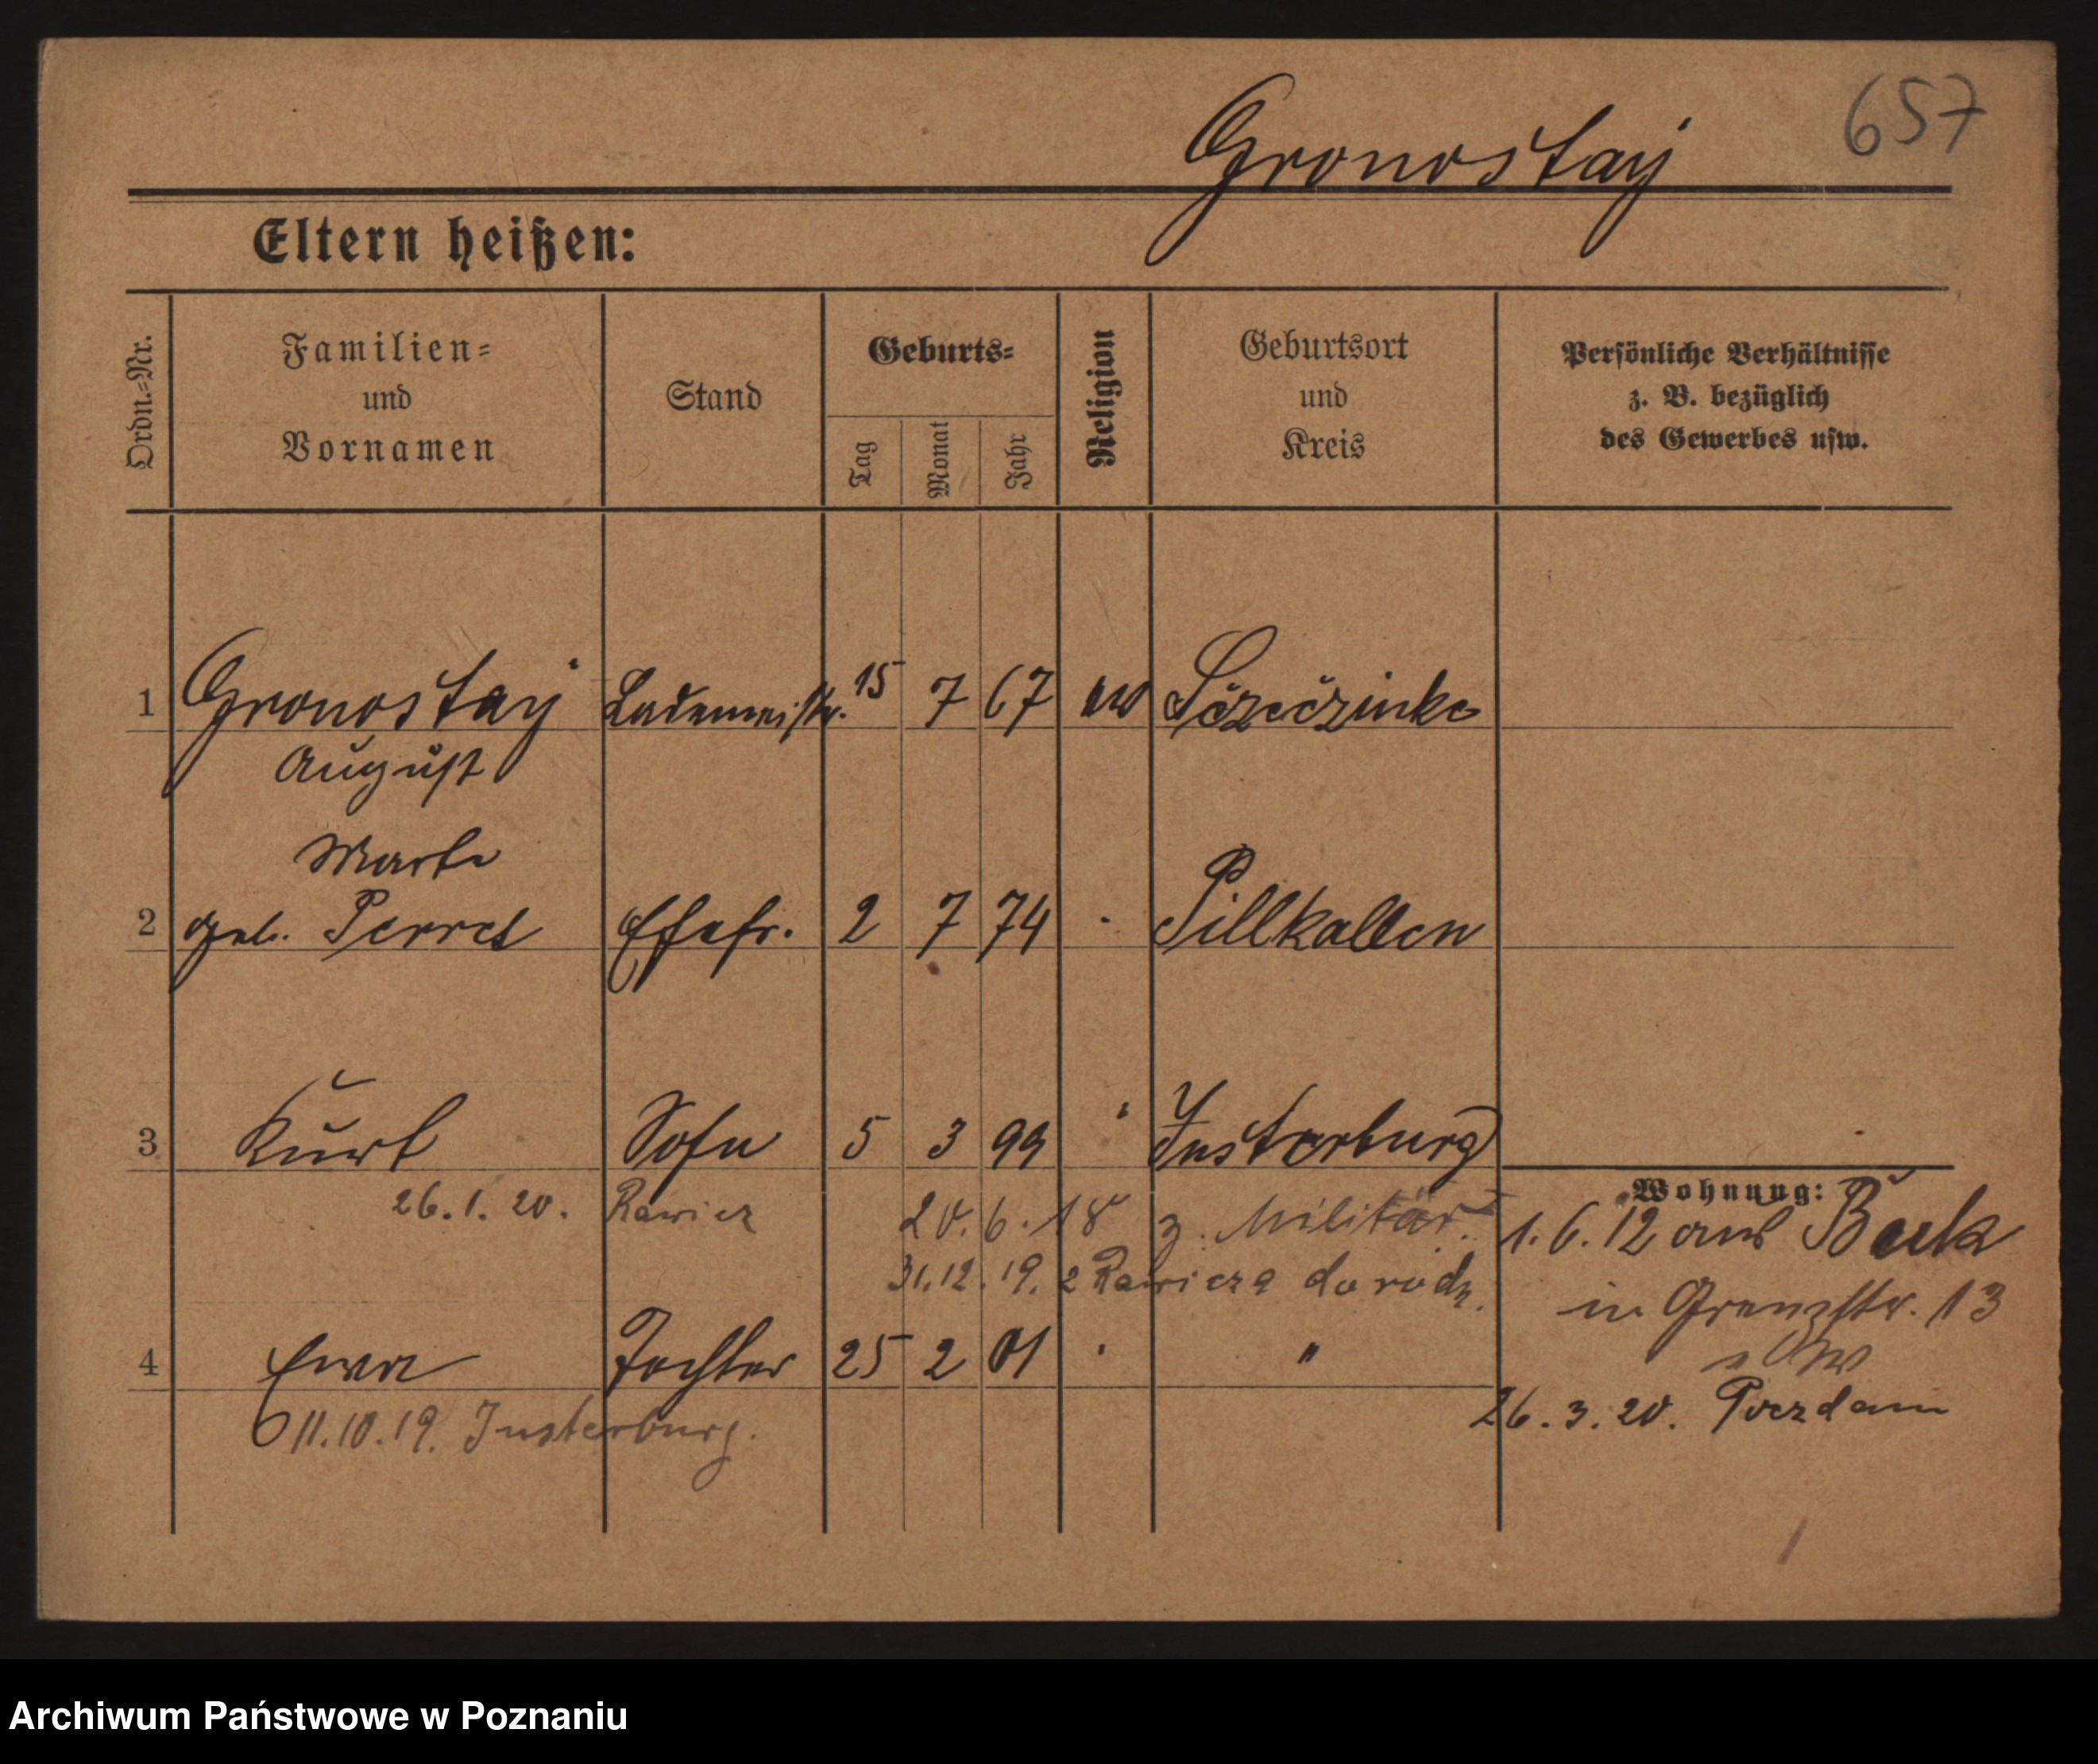 657
Gronostay
Eltern heißen:
Ordn.-Nr.
Familien-
und
Vornamen
Stand
Geburts-
Tag
Monat
Jahr
Religion
Geburtsort
und
Kreis
Persönliche Verhältnisse
z. B. bezüglich
des Gewerbes usw.
1 Gronostay Lademeistr. 15 7 67 ev Sczeczinke
August
Marta
2 geb. Perret Ehefr. 2 7 74 Pillkallen
3 Kurt Sohn 5 3 99 Insterburg
Wohnung:
26.1.20. Rawicz 20.6.18 z. Militär.
1.6.12 aus Buk
31.12.19. z Rawicza do rodz.
in Grenzstr. 13
4 Ewa Tochter 25 2 01 "
26.3.20. Poczdam
11.10.19. Insterburg.
Archiwum Państwowe w Poznaniu